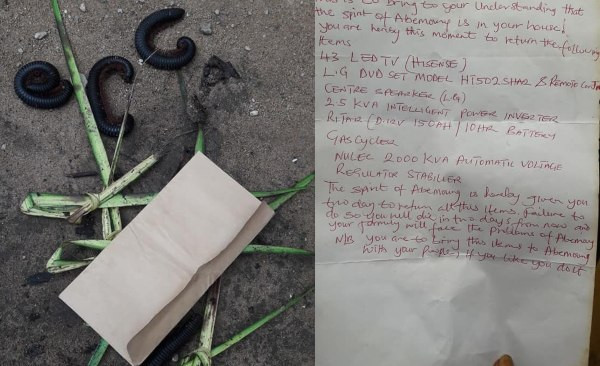 is to bring to your Understanding that
the spirit of Abemowny is in your house!
you are hereby this moment to return the following
Items
43 LED TV (HISENSE)
L.G DVD SET MODEL HT502SHAR & Remote Contr
CENTRE SPEARKER (LG)
2.5 KVA INTELLIGENT POWER INVERTER
RITAR (D.12V 150AH / 10HR BATTERY
GAS Cycler
NULEC 2000 KVA AUTOMATIC VOLTAGE
REGULATOR STABILIER
The spirit of Abemowny is hereby given you
two day to return all this items, failure to
do so you will die in two days from now and
your formily will face the problems of Abemowny
N/B you are to bring this items to Abemowny
with your if you like you do it